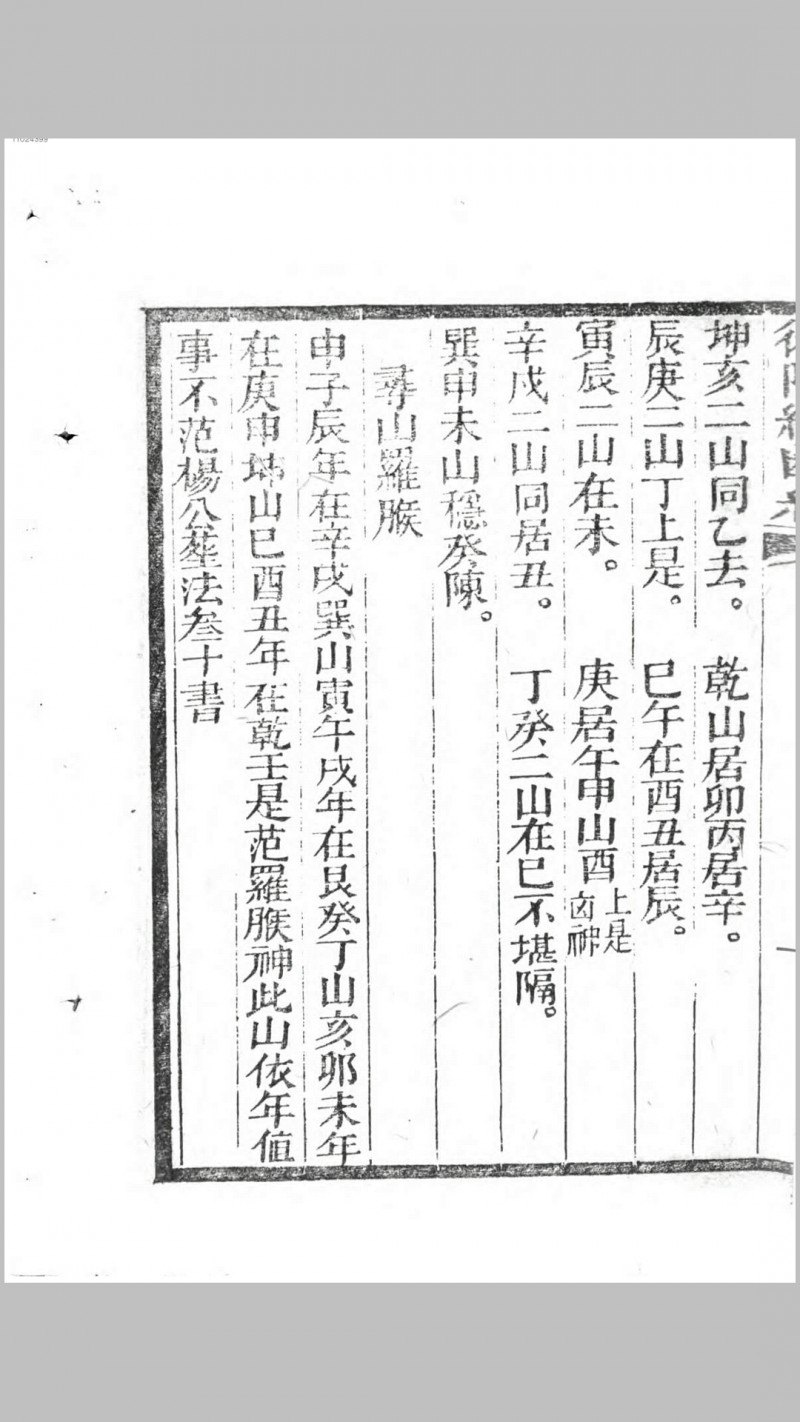 坤亥二山同乙去。 乾山居卯丙居辛。
辰庚二山丁上是。 巳午在酉丑居辰。
寅辰二山在未。 庚居午申山酉上是凶神
辛戌二山同居丑。 丁癸二山在巳不堪隔。
巽申未山穩癸陳。
尋山羅睺
申子辰年在辛戌巽山寅午戌年在艮癸丁山亥卯未年
在庚申坤山巳酉丑年在乾壬是范羅睺神此山依年值
事不范楊公葬法叄十書